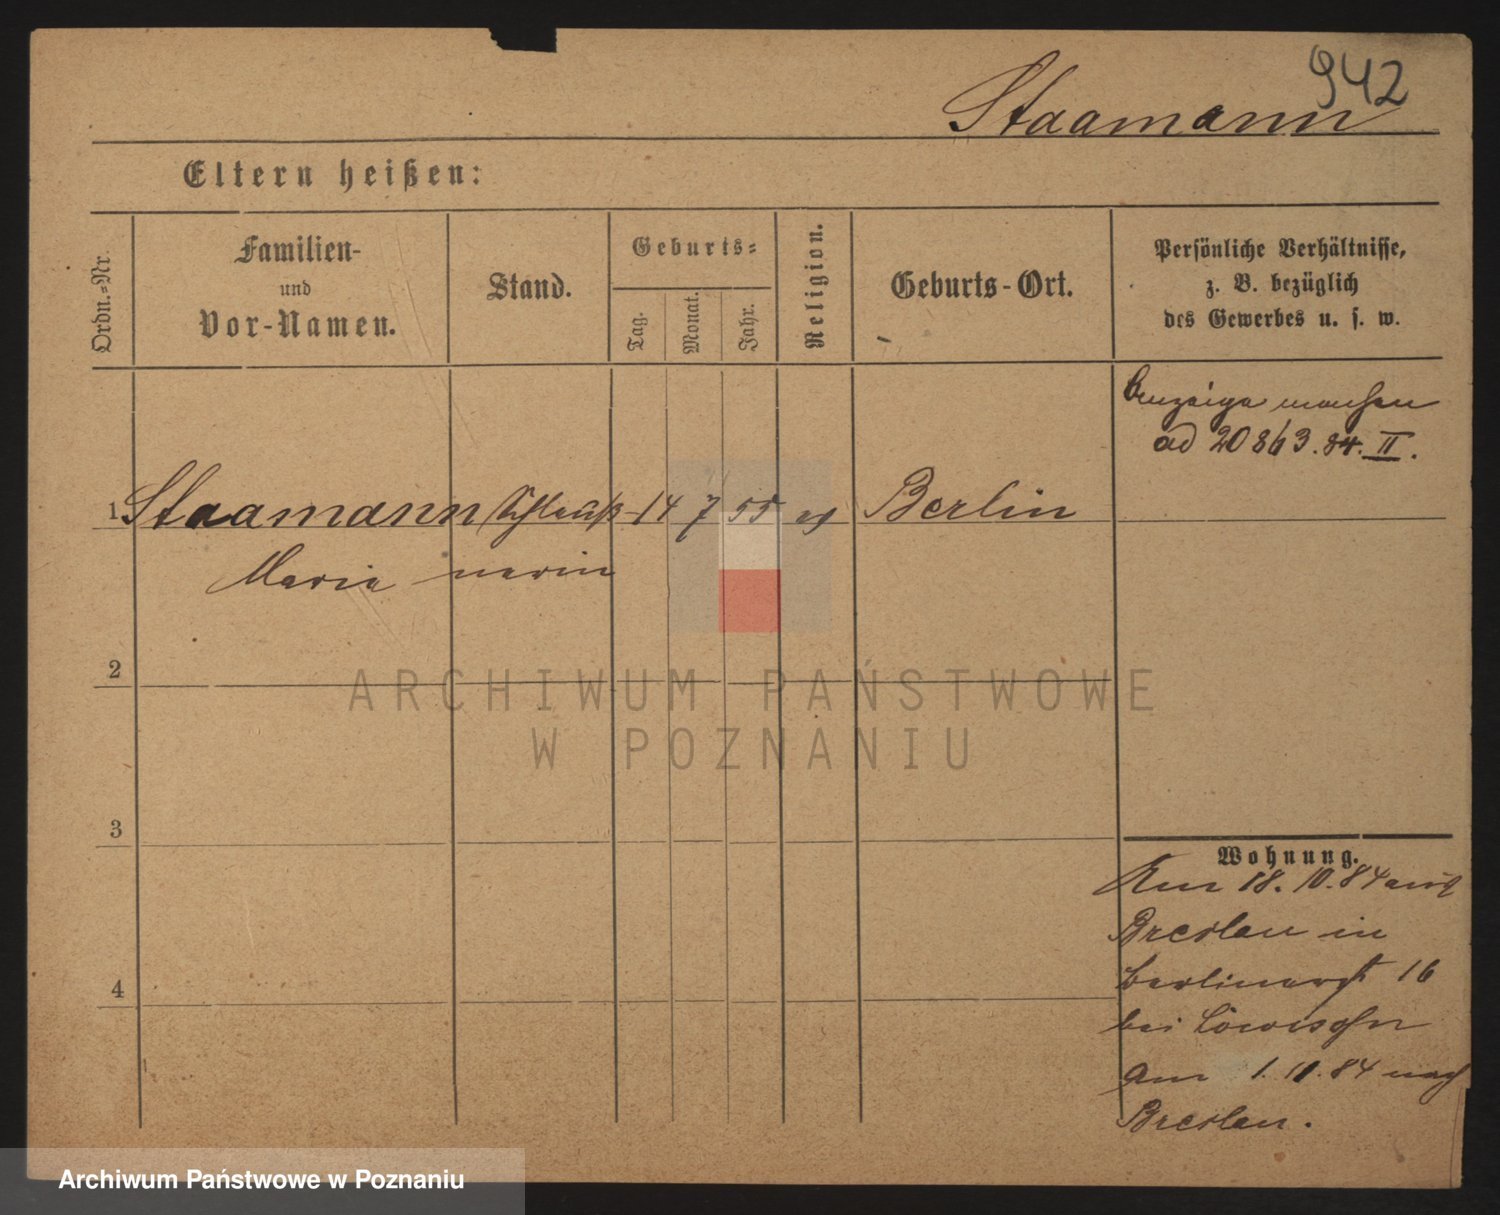 942
Staamann
Eltern heißen:
Ordn.-Nr.
Familien-
und
Vor-Namen.
Stand.
Geburts-
Tag.
Monat.
Jahr.
Religion.
Geburts-Ort.
Persönliche Verhältnisse,
z. B. bezüglich
des Gewerbes u. s. w.
ad 20863.84. II.
1 Staamann 14 7 55 Berlin
Maria
2
3
4
Wohnung.
Am 18. 10. 84 aus
Breslau in
Berlinerst 16
bei Löwisohn
am 1. 11. 84 nach
Breslau.
ARCHIWUM PAŃSTWOWE
W POZNANIU
Archiwum Państwowe w Poznaniu